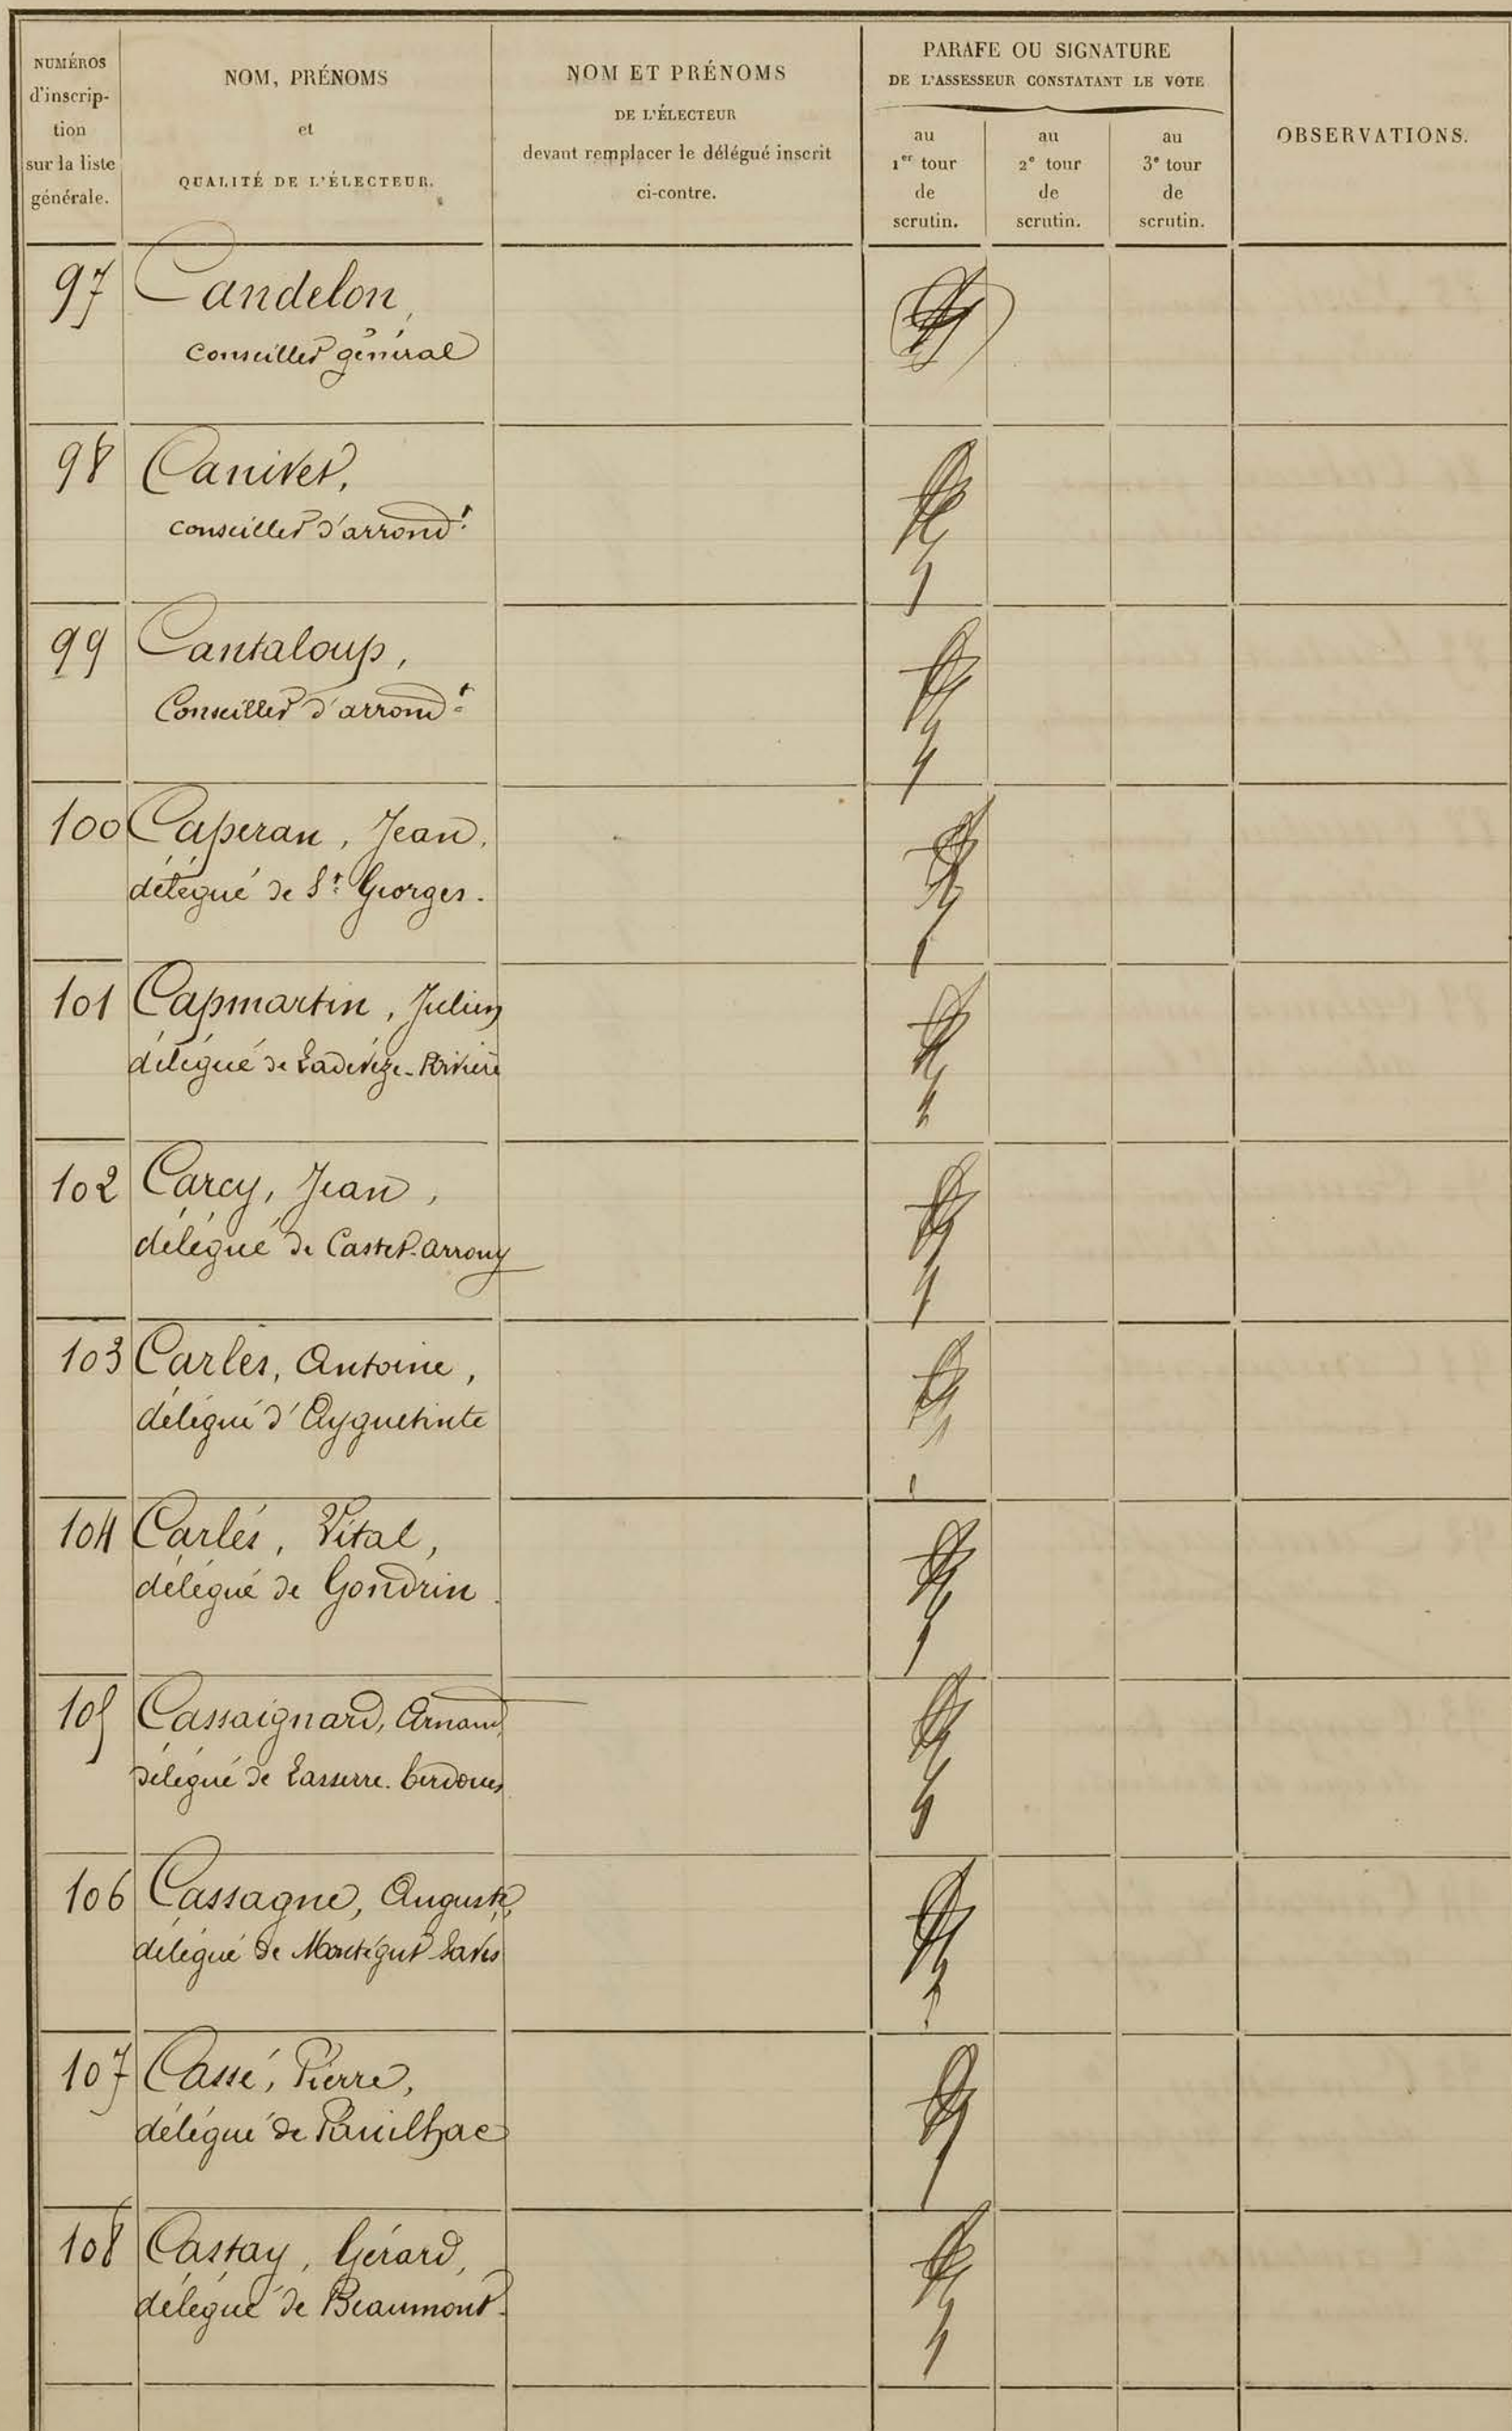 NUMÉROS
d'inscrip-
tion
sur la liste
générale.
NOM, PRÉNOMS
et
QUALITÉ DE L'ÉLECTEUR.
NOM ET PRÉNOMS
DE L'ÉLECTEUR
devant remplacer le délégué inscrit
ci-contre.
PARAFE OU SIGNATURE
DE L'ASSESSEUR CONSTATANT LE VOTE
au
1er tour
de
scrutin.
au
2e tour
de
scrutin.
au
3e tour
de
scrutin.
OBSERVATIONS.
97 Candelon,
Conseiller général
98 Canivet,
Conseiller d'arrondt
99 Cantaloup,
Conseiller d'arrondt
100 Caperan, Jean,
délégué de St Georges.
101 Capmartin, Julien
délégué de Ladevèze-Rivière
102 Carcy, Jean,
délégué de Castet-arrouy
103 Carlès, Antoine,
délégué d'Ayguetinte
104 Carlés, Vital,
délégué de Gondrin.
105 Cassaignard, Arnaud,
délégué de Lasserre-berdoues
106 Cassagne, Auguste,
délégué de Montégut Savès
107 Cassé, Pierre,
délégué de Pauilhac
108 Castay, Gérard,
délégué de Beaumont.